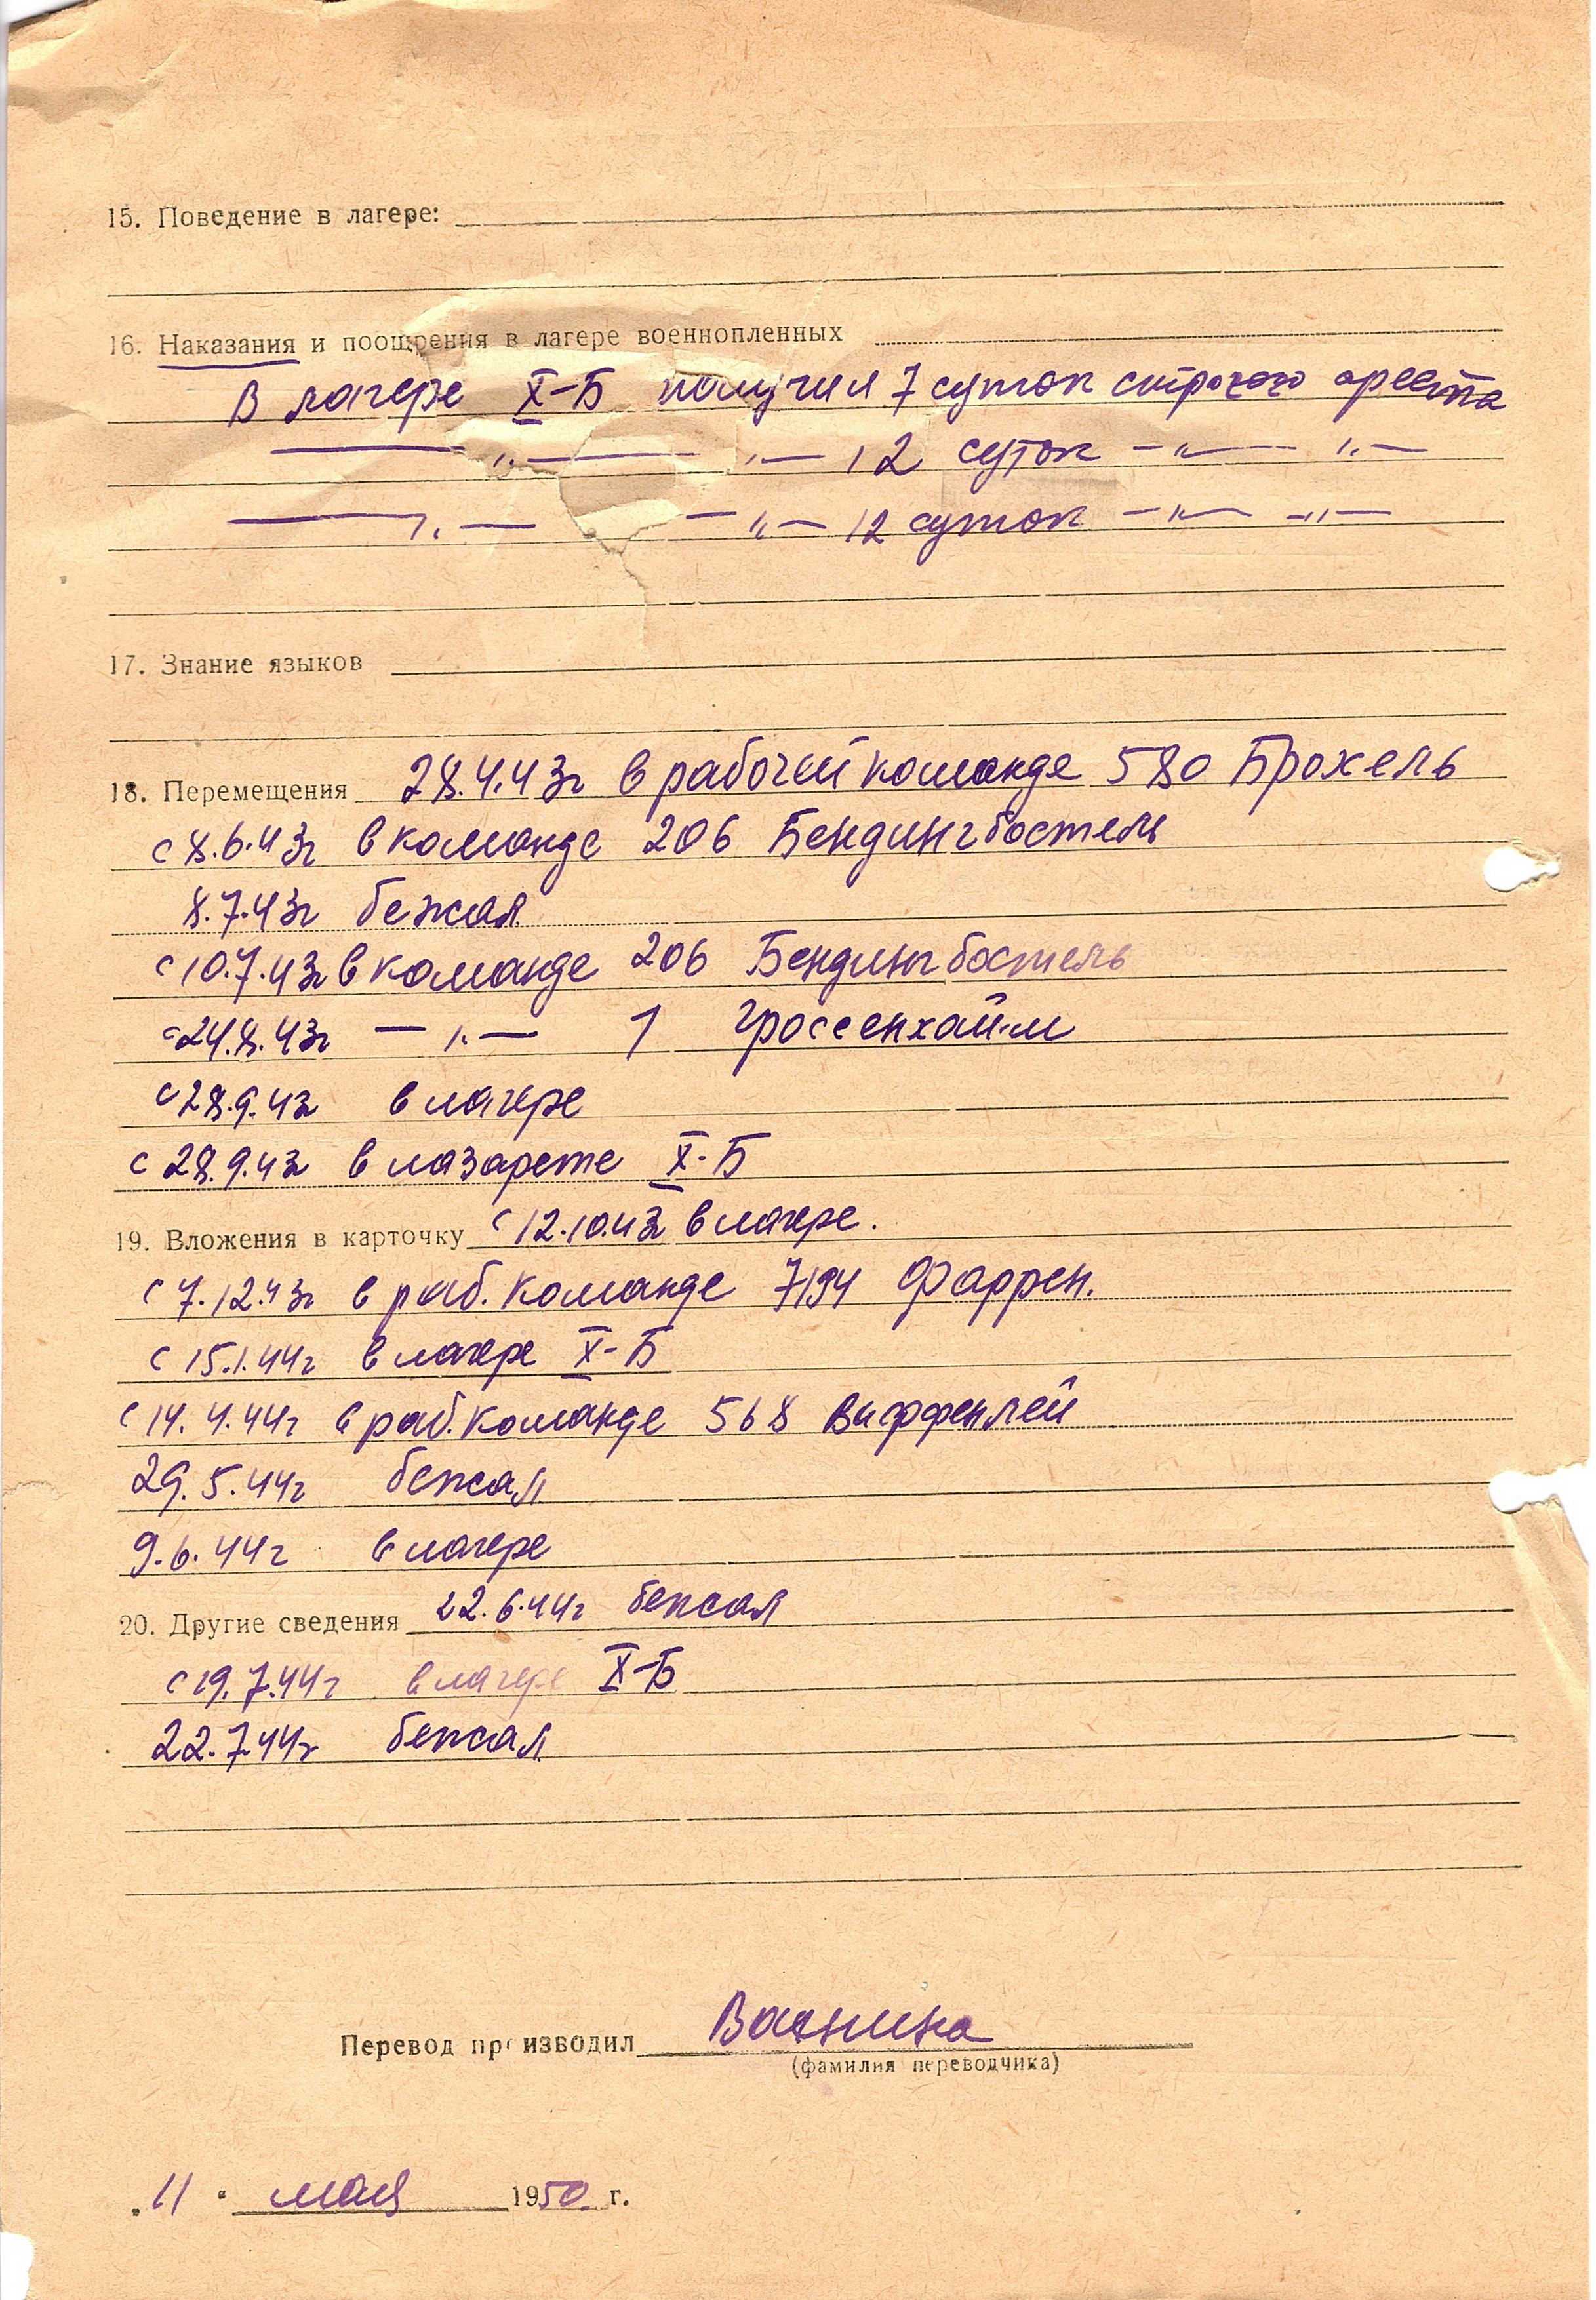 15. Поведение в лагере:
16. Наказания и поощрения в лагере военнопленных
В лагере X-Б получил 7 суток строгого ареста
— „ — — „ — 12 суток — „ — „ —
— „ — — „ — 12 суток — „ — — „ —
17. Знание языков
18. Перемещения 28.4.43г в рабочей команде 580 Брохель
с 8.6.43г в команде 206 Бендингбостель
8.7.43г бежал
с 10.7.43г в команде 206 Бендингбостель
с 24.8.43г — „ — 1 Гроссенхайм
с 28.9.43 в лагере
с 28.9.43 в лазарете X-Б
19. Вложения в карточку с 12.10.43 в лагере.
с 7.12.43г в раб. команде 7194 Фаррен.
с 15.1.44г в лагере X-Б
с 14.4.44г в раб. команде 568 Виффенлей
29.5.44г бежал
9.6.44г в лагере
20. Другие сведения 22.6.44г бежал
с 19.7.44г в лагере X-Б
22.7.44г бежал
Перевод производил
(фамилия переводчика)
„11" мая 1950 г.